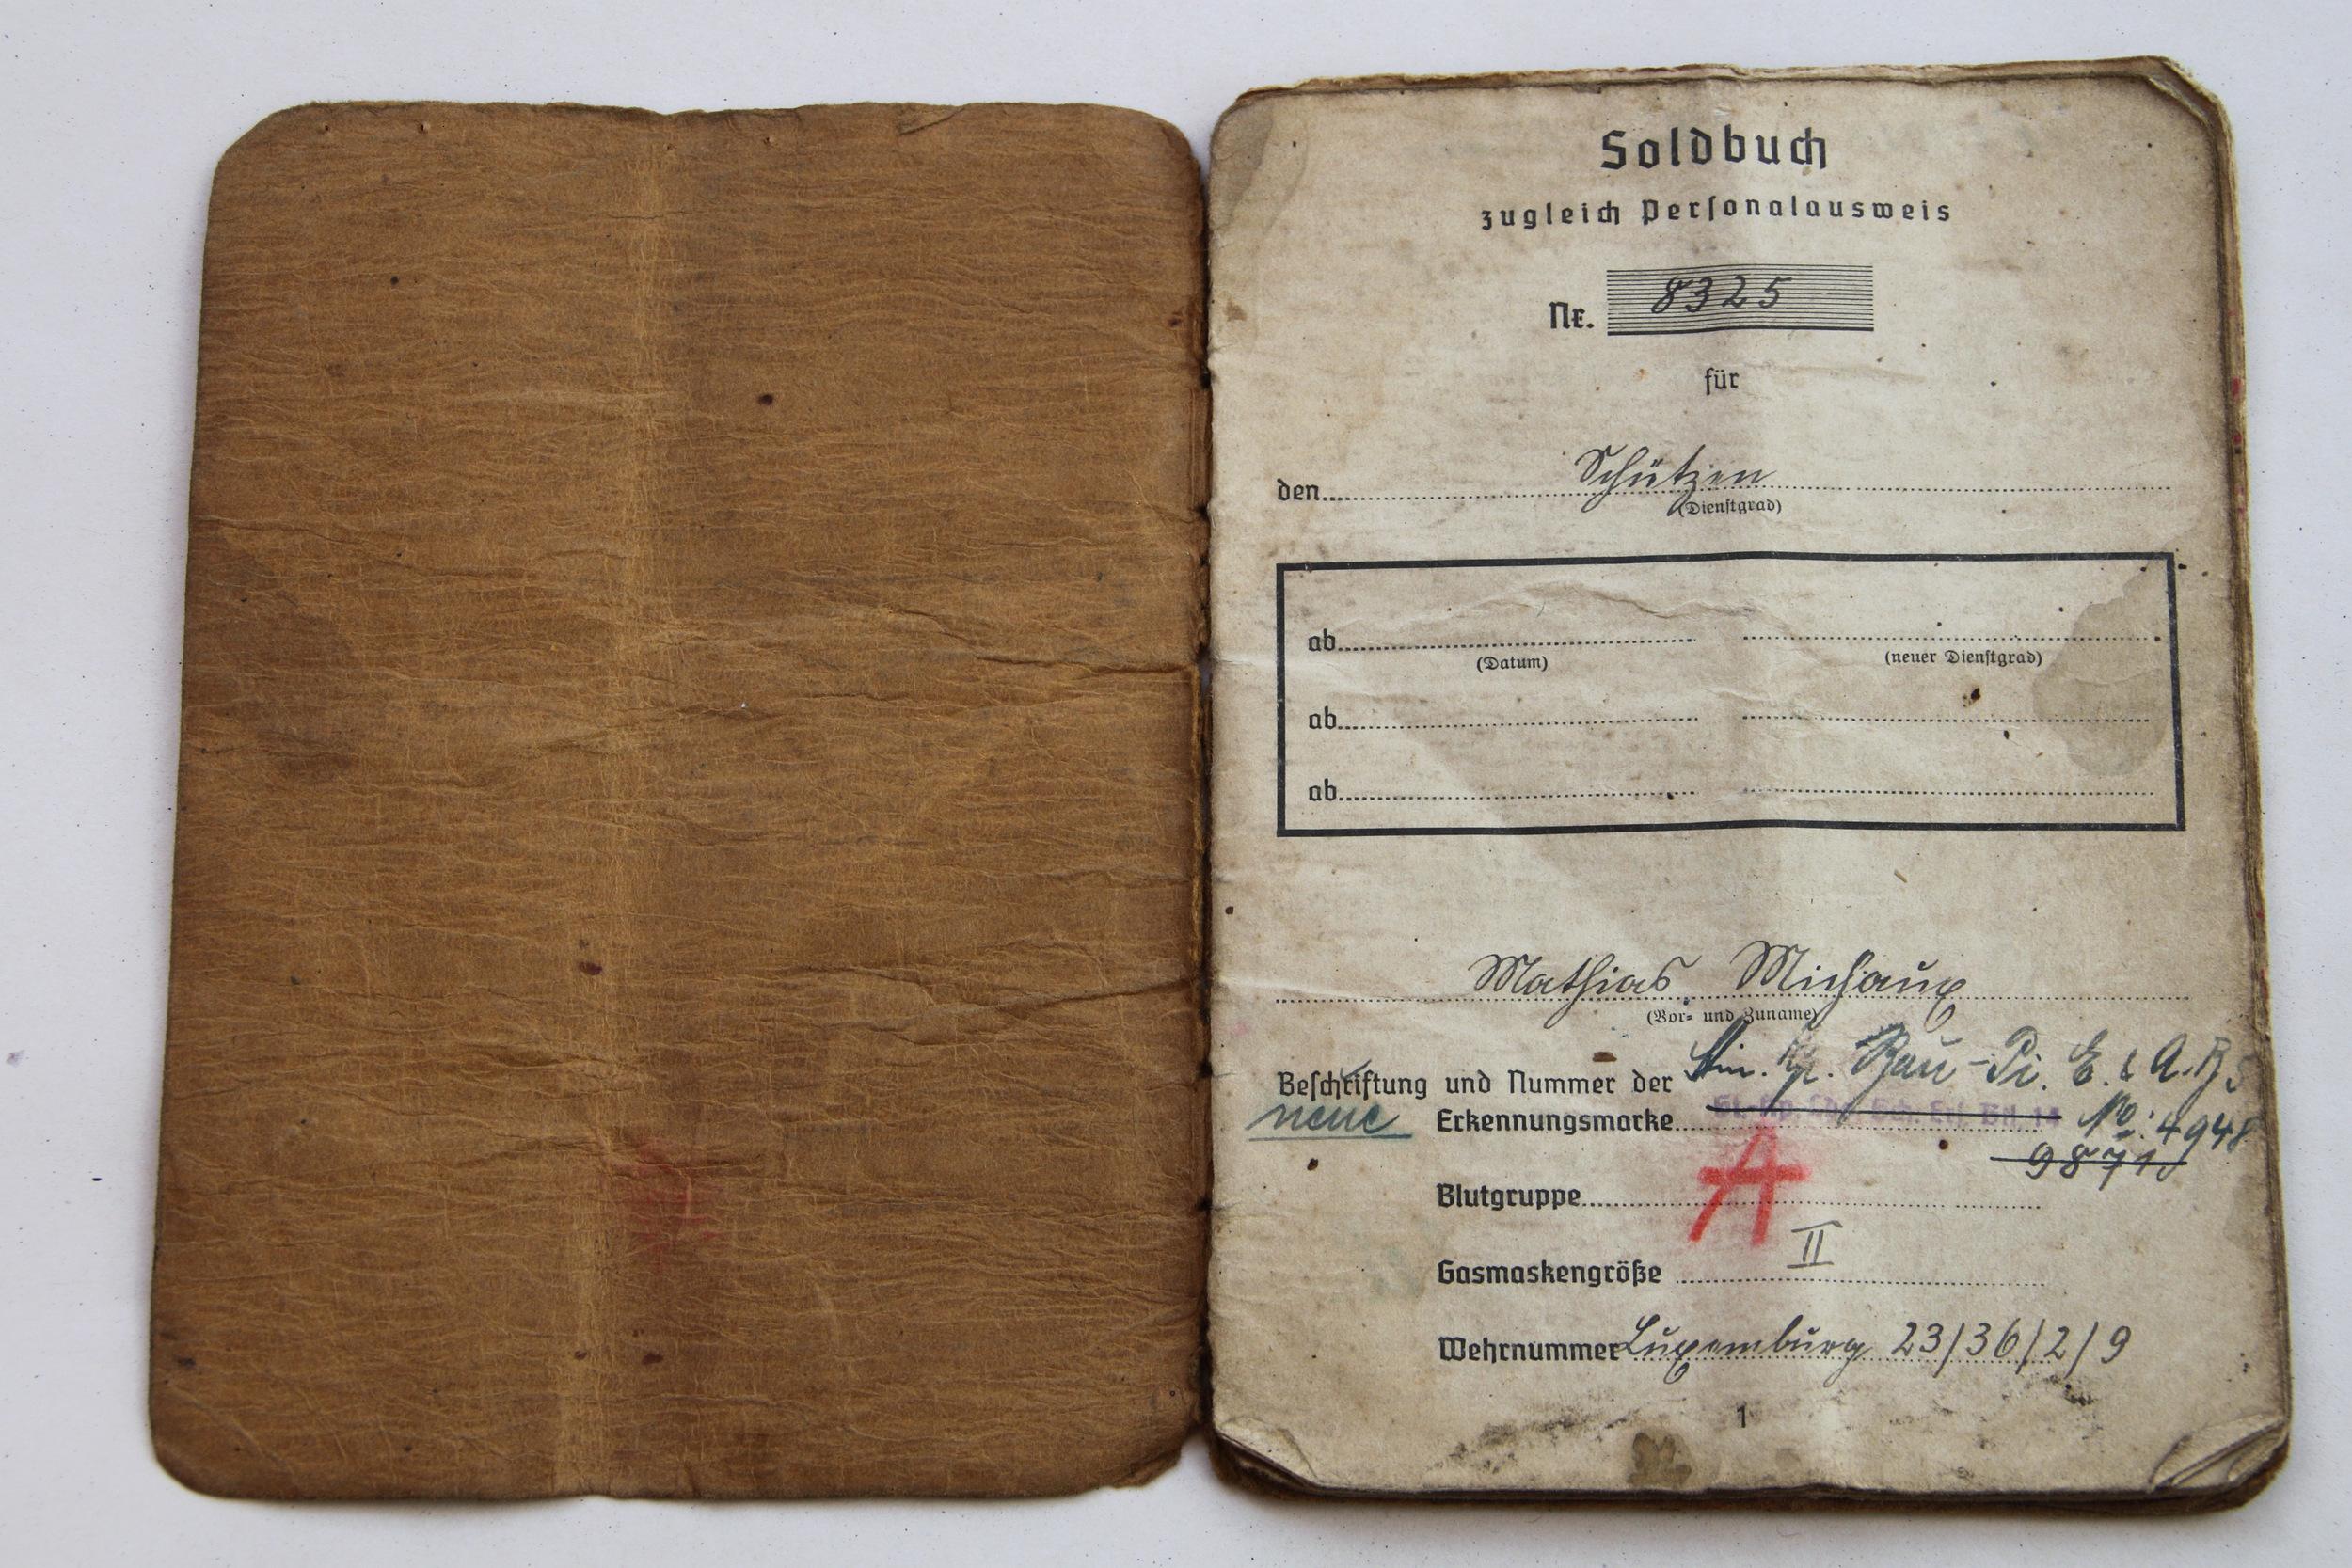 Soldbuch
zugleich Personalausweis
Nr. 8325
für
den Schützen
(Dienstgrad)
ab
(Datum) (neuer Dienstgrad)
ab
ab
Mathias Michaux
(Vor- und Zuname)
Beschriftung und Nummer der Bau-Pi. E. & A. B 5
neue Erkennungsmarke No: 4948
9871
Blutgruppe A
Gasmaskengröße II
Wehrnummer Luxemburg 23/36/2/9
1